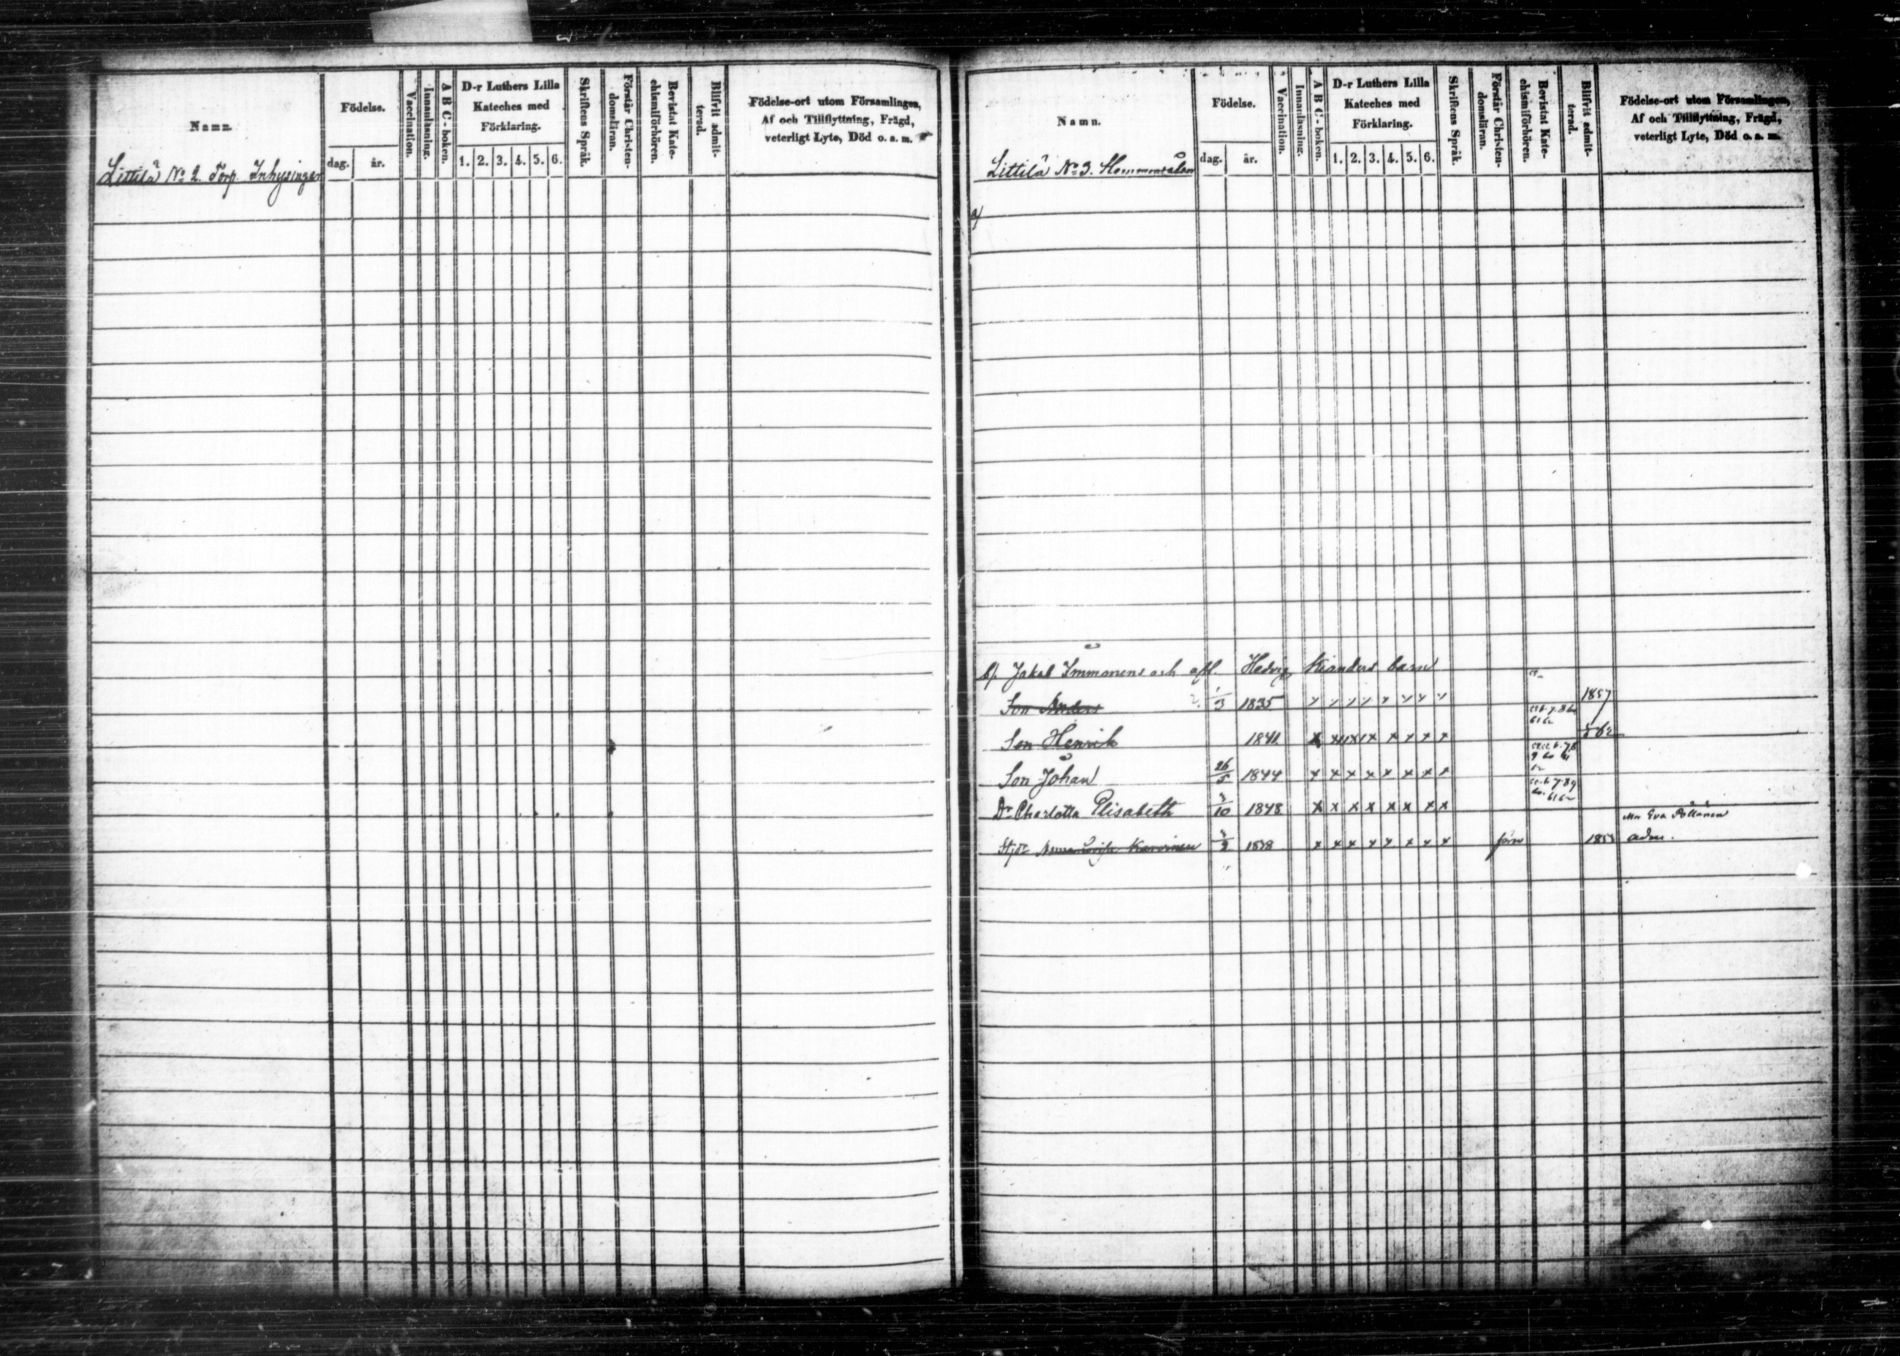 Namn.
Födelse.
dag. år.
Vaccination.
Innanläsning.
A B C-boken.
D-r Luthers Lilla
Kateches med
Förklaring.
1. 2. 3. 4. 5. 6.
Skriftens Språk.
Förstår Christen-
domsläran.
Bevistat Kate-
chismiförhören.
Blifvit admit-
terad.
Födelse-ort utom Församlingen,
Af och Tillflyttning, Frägd,
veterligt Lyte, Död o. a. m.
Littilä No 2. Torp. Inhysingar
Namn.
Födelse.
dag. år.
Vaccination.
Innanläsning.
A B C-boken.
D-r Luthers Lilla
Kateches med
Förklaring.
1. 2. 3. 4. 5. 6.
Skriftens Språk.
Förstår Christen-
domsläran.
Bevistat Kate-
chismiförhören.
Blifvit admit-
terad.
Födelse-ort utom Församlingen,
Af och Tillflyttning, Frägd,
veterligt Lyte, Död o. a. m.
Littilä No 3.
a/
b/. Jakob Immonens och afl. Hedvig Kianders barn
Son Anders 1835 1857
Son Henrik
Son Johan 26/5 1844
Dr Charlotta Elisabeth 1848
Eva
Karvinen 1838 adm.